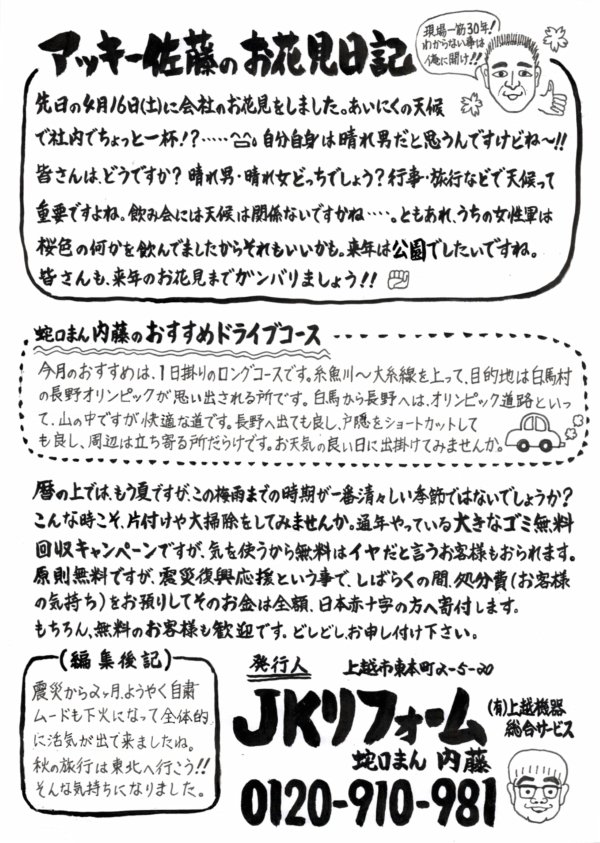 アッキー佐藤のお花見日記
現場一筋30年!
わからない事は
俺に聞け!!
先日の4月16日(土)に会社のお花見をしました。あいにくの天候
で社内でちょっと一杯!?‥‥‥。自分自身は晴れ男だと思うんですけどね〜!!
皆さんは、どうですか?晴れ男・晴れ女どっちでしょう?行事・旅行などで天候って
重要ですよね。飲み会には天候は関係ないですかね‥‥。ともあれ、うちの女性軍は
桜色の何かを飲んでましたからそれもいいかも。来年は公園でしたいですね。
皆さんも、来年のお花見までガンバリましょう!!
蛇口まん内藤のおすすめドライブコース
今月のおすすめは、1日掛りのロングコースです。糸魚川〜大糸線を上って、目的地は白馬村
の長野オリンピックが思い出される所です。白馬から長野へは、オリンピック道路といっ
て、山の中ですが快適な道です。長野へ出ても良し、戸隠をショートカットして
も良し、周辺は立ち寄る所だらけです。お天気の良い日に出掛けてみませんか。
暦の上では、もう夏ですが、この梅雨までの時期が一番清々しい季節ではないでしょうか?
こんな時こそ、片付けや大掃除をしてみませんか。通年やっている大きなゴミ無料
回収キャンペーンですが、気を使うから無料はイヤだと言うお客様もおられます。
原則無料ですが、震災復興応援という事で、しばらくの間、処分費(お客様
の気持ち)をお預りしてそのお金は全額、日本赤十字の方へ寄付します。
もちろん、無料のお客様も歓迎です。どしどし、お申し付け下さい。
(編集後記)
震災から2ヶ月、ようやく自粛
ムードも下火になって全体的
に活気が出て来ましたね。
秋の旅行は東北へ行こう!!
そんな気持ちになりました。
発行人 上越市東本町2-5-20
JKリフォーム
(有)上越機器
総合サービス
蛇口まん 内藤
0120-910-981